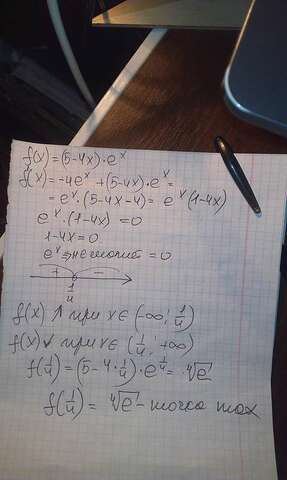 f(x)=(5-4x)·eˣ
f'(x)=-4eˣ+(5-4x)·eˣ=
=eˣ·(5-4x-4)=eˣ(1-4x)
eˣ·(1-4x)=0
1-4x=0
=0
+ -
1/4
f(x) ↑ при x∈(-∞; 1/4)
f(x) ↓ при x∈(1/4; +∞)
f(1/4)=(5-4·1/4)·e^(1/4)=·⁴√e
f(1/4)=⁴√e-точка max